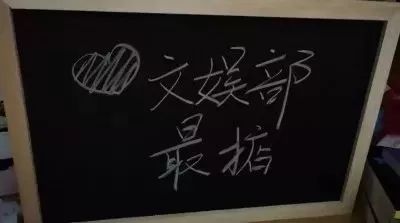 文娱部
最掂